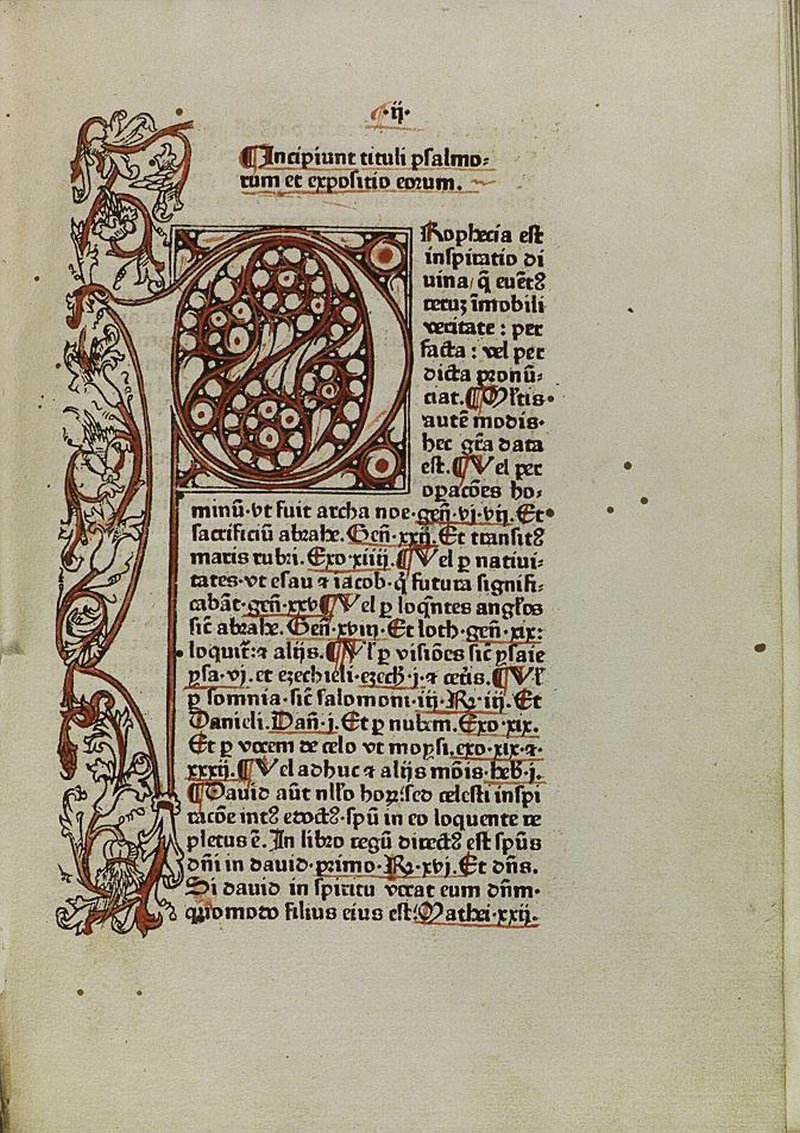 ¶·ij·
¶Incipiunt tituli psalmo⸗
rum et expositio eorum.
Rophecia est
inspiratio di
uina/ q̄ euēt⁊
reruȝ īmobili
veritate : per
facta : vel per
dicta pronū⸗
ciat.¶Ml'tis·
autē modis·
hec gr̄a data
est.¶Vel per
oꝑacōes ho⸗
minū·vt fuit archa noe·geñ·vj·vij·Et·
sacrificiū abrahe·Geñ·xxij·Et transit⁊
maris rubri.Exo·xiiij.¶Vel ꝑ natiui⸗
tates·vt esau ⁊ iacob·q̄ futura signifi⸗
cabāt·geñ·xxv¶Vel ꝑ loq̄ntes angl'os
sic̄ abrahe·Geñ·xviij·Et loth·geñ·xix:
loquit᷑:⁊ alijs.¶Vl' ꝑ visiōes sic̄ ysaie
ysa·vj.et ezechieli·ezecħ·j·⁊ cet'is.¶Vl'
ꝑ somnia·sic̄ salomoni·iij·Rꝝ·iij.Et
Danieli.Dañ·j.Et ꝑ nubem.Exo·xix.
Et ꝑ vocem de celo vt moysi.exo·xix·⁊·
xxxij.¶Vel adhuc ⁊ alijs mōis·heb̄·j.
¶Dauid aūt nl'lo hoꝝ:sed celesti inspi
racōe int⁊ eiod⁊·spū in eo loquente re
pletus ē.In libro regū direct⁊ est spūs
dñi in dauid·primo·Rꝝ·xvj.Et dñs.
Si dauid in spiritu vocat eum dñm·
quomodo filius eius est:Mathei·xxij.